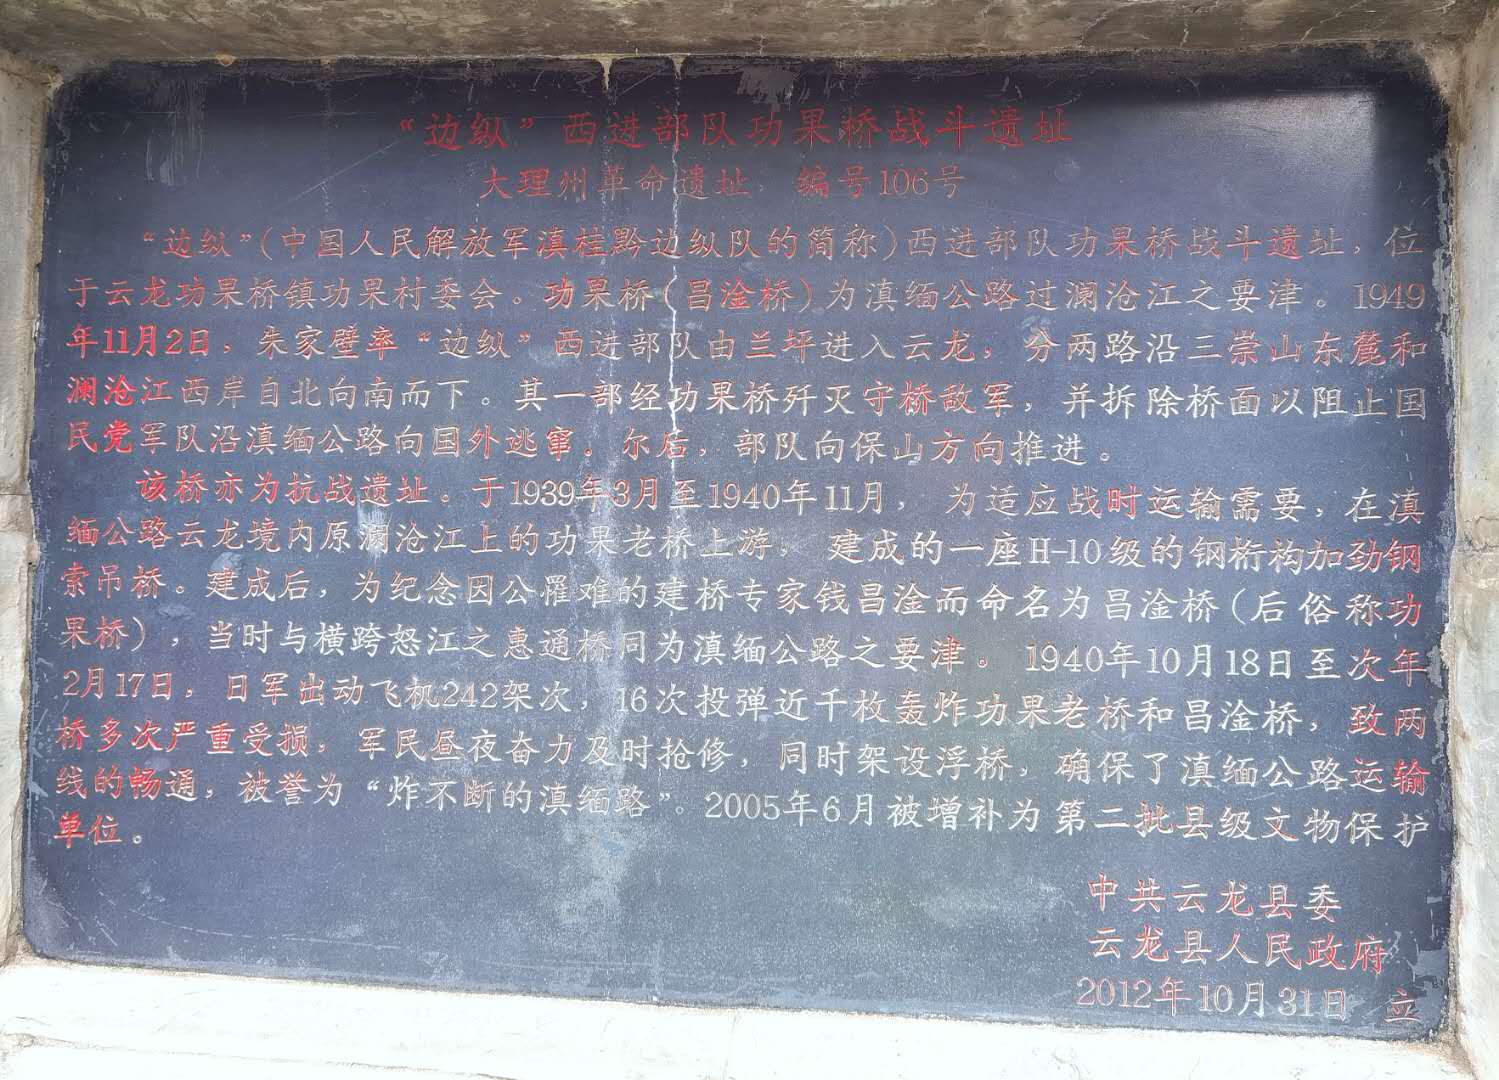 “边纵”西进部队功果桥战斗遗址
大理州革命遗址 编号106号
“边纵”(中国人民解放军滇桂黔边纵队的简称)西进部队功果桥战斗遗址，位
于云龙功果桥镇功果村委会。功果桥(昌淦桥)为滇缅公路过澜沧江之要津。1949
年11月2日，朱家璧率“边纵”西进部队由兰坪进入云龙，分两路沿三崇山东麓和
澜沧江西岸自北向南而下。其一部经功果桥歼灭守桥敌军，并拆除桥面以阻止国
民党军队沿滇缅公路向国外逃窜。尔后，部队向保山方向推进。
该桥亦为抗战遗址。于1939年3月至1940年11月，为适应战时运输需要，在滇
缅公路云龙境内原澜沧江上的功果老桥上游，建成的一座H-10级的钢桁构加劲钢
索吊桥。建成后，为纪念因公罹难的建桥专家钱昌淦而命名为昌淦桥(后俗称功
果桥)，当时与横跨怒江之惠通桥同为滇缅公路之要津。1940年10月18日至次年
2月17日，日军出动飞机242架次，16次投弹近千枚轰炸功果老桥和昌淦桥，致两
桥多次严重受损，军民昼夜奋力及时抢修，同时架设浮桥，确保了滇缅公路运输
线的畅通，被誉为“炸不断的滇缅路”。2005年6月被增补为第二批县级文物保护
单位。
中共云龙县委
云龙县人民政府
2012年10月31日 立